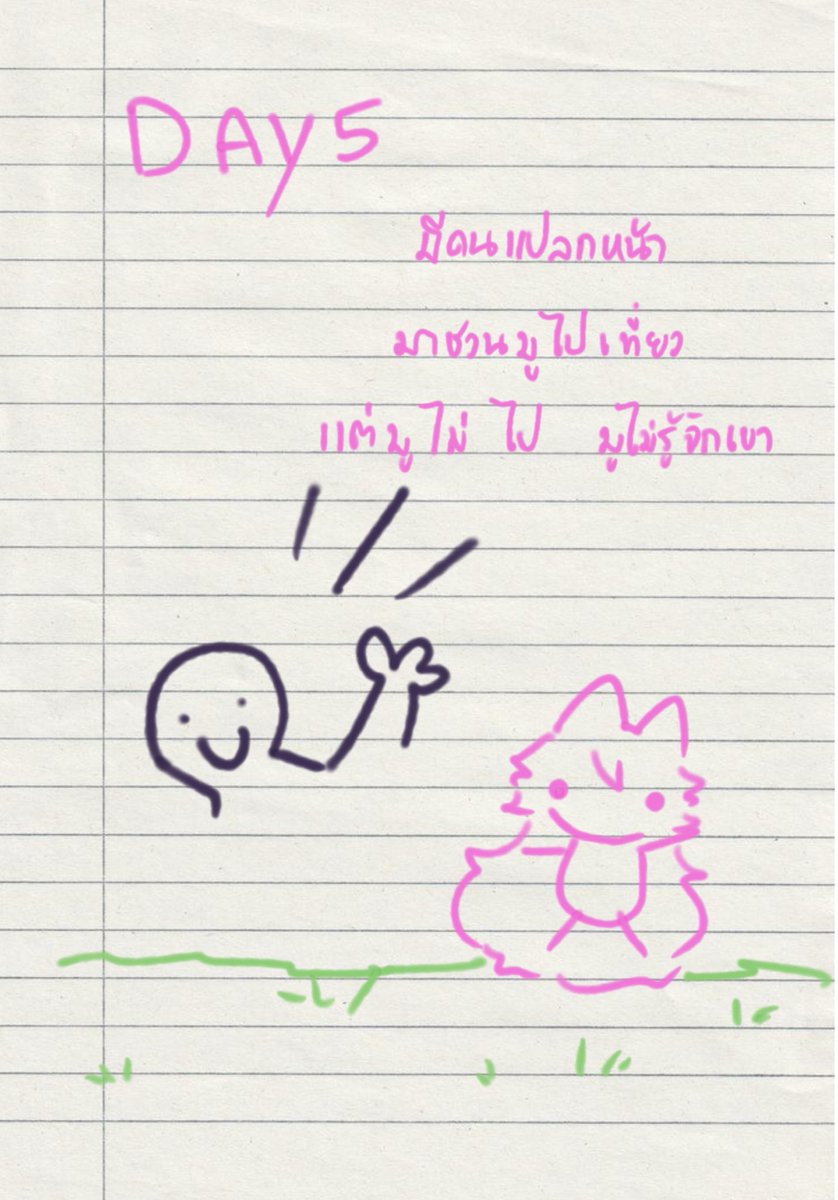 DAY 5
มีคนแปลกหน้า
มาชวนมูไปเที่ยว
แต่มูไม่ ไป มูไม่รู้จักเขา